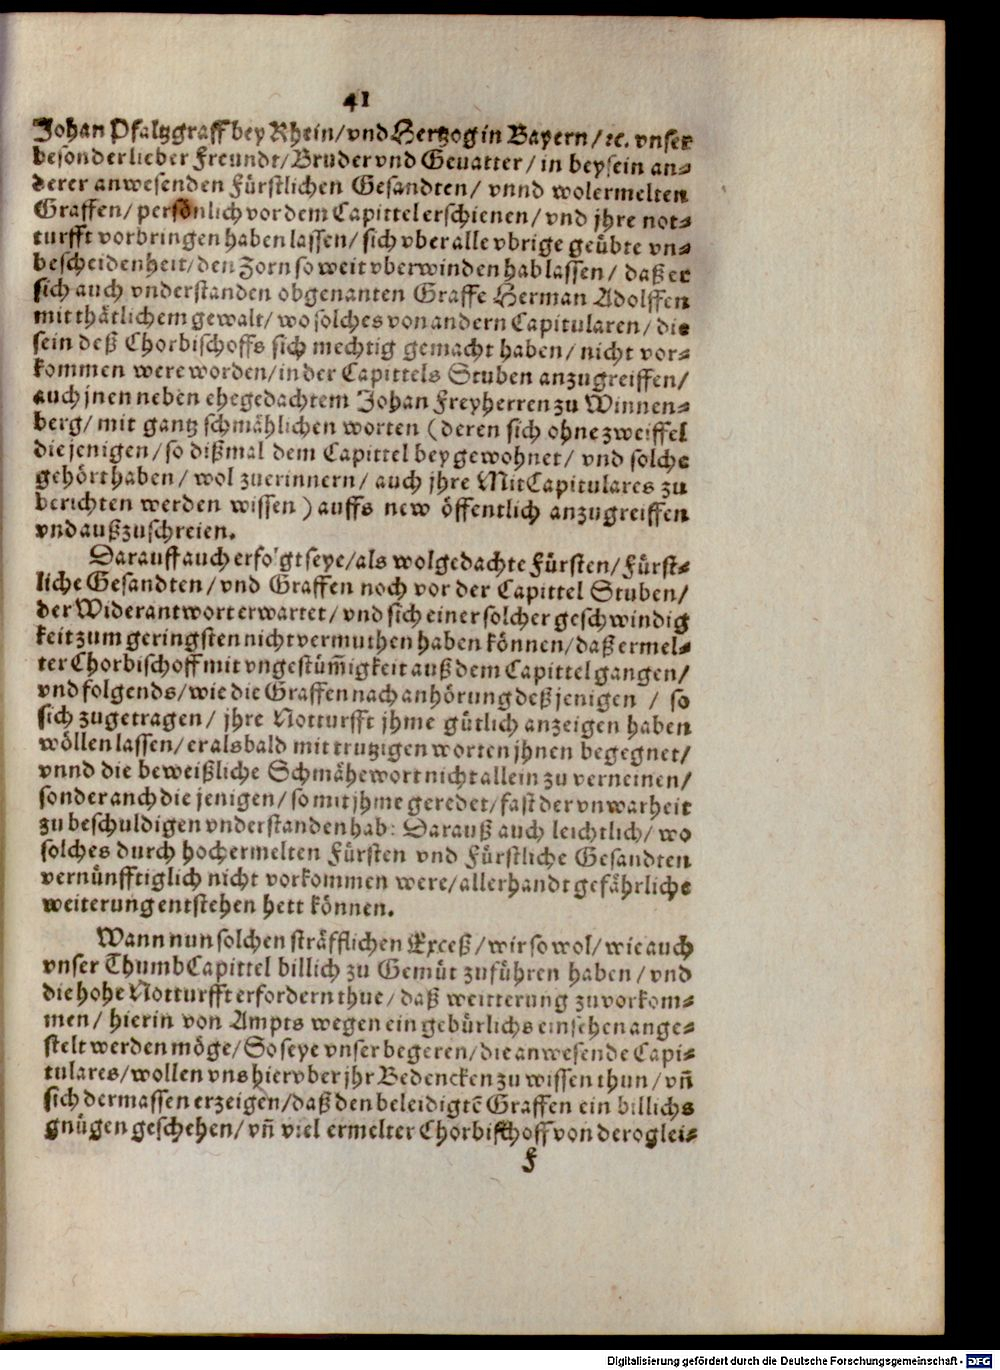 41
Johan Pfaltzgraff bey Rhein/ vnd Hertzog in Bayern/ ꝛc. vnser
besonder lieber Freundt/ Bruder vnd Gevatter/ in beysein an-
derer anwesenden Fürstlichen Gesandten/ vnnd wolermelten
Graffen/ persönlich vor dem Capittel erschienen/ vnd jhre not-
turfft vorbringen haben lassen/ sich vber alle vbrige geübte vn-
bescheidenheit/ den Zorn so weit vberwinden hab lassen/ daß er
sich auch vnderstanden obgenanten Graffe Herman Adolffen
mit thätlichem gewalt/ wo solches von andern Capitularen/ die
sein deß Chorbischoffs sich mechtig gemacht haben/ nicht vor-
kommen were worden/ in der Capittels Stuben anzugreiffen/
auch jnen neben ehegedachtem Johan Freyherren zu Winnen-
berg/ mit gantz schmählichen worten (deren sich ohne zweiffel
die jenigen/ so dißmal dem Capittel beygewohnet/ vnd solche
gehört haben/ wol zuerinnern/ auch jhre MitCapitulares zu
berichten werden wissen) auffs new öffentlich anzugreiffen
vnd außzuschreien.
Darauff auch erfolgt seye/ als wolgedachte Fürsten/ Fürst-
liche Gesandten/ vnd Graffen noch vor der Capittel Stuben/
der Widerantwort erwartet/ vnd sich einer solcher geschwindig
keit zum geringsten nicht vermuthen haben können/ daß ermel-
ter Chorbischoff mit vngestüm̃igkeit auß dem Capittel gangen/
vnd folgends/ wie die Graffen nach anhörung deß jenigen / so
sich zugetragen/ jhre Notturfft jhme gütlich anzeigen haben
wöllen lassen/ er alsbald mit trutzigen worten jhnen begegnet/
vnnd die beweißliche Schmähewort nicht allein zu verneinen/
sonder anch die jenigen/ so mit jhme geredet/ fast der vnwarheit
zu beschuldigen vnderstanden hab: Darauß auch leichtlich/ wo
solches durch hochermelten Fürsten vnd Fürstliche Gesandten
vernünfftiglich nicht vorkommen were/ allerhandt gefährliche
weiterung entstehen hett können.
Wann nun solchen sträfflichen Exceß/ wir so wol/ wie auch
vnser ThumbCapittel billich zu Gemüt zuführen haben/ vnd
die hohe Notturfft erfordern thue/ daß weitterung zuvorkom-
men/ hierin von Ampts wegen ein gebürlichs einsehen ange-
stelt werden möge/ So seye vnser begeren/ die anwesende Capi-
tulares/ wollen vns hiervber jhr Bedencken zu wissen thun/ vñ
sich dermassen erzeigen/ daß den beleidigtẽ Graffen ein billichs
gnügen geschehen/ vñ viel ermelter Chorbischoff von deroglei-
F
Digitalisierung gefördert durch die Deutsche Forschungsgemeinschaft - DFG